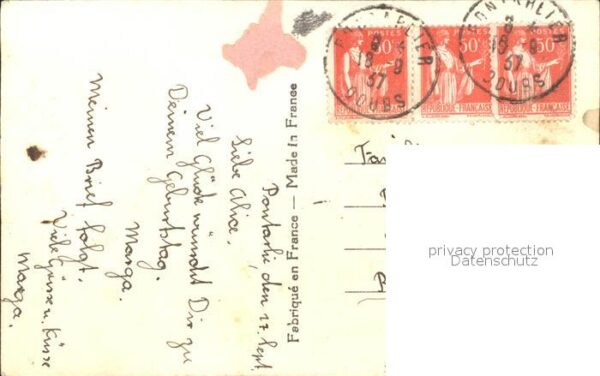 Pontarlie, den 17. Sept.
Liebe Alice,
Viel Glück wünscht Dir zu
Deinem Geburtstag.
Marga.
Meinen Brief folgt.
Viele Grüsse u. Küsse
Marga.
Fabriqué en France — Made in France
PONTARLIER
18-9
37
DOUBS
PONTARLIER
18-9
37
DOUBS
50c
50c
50c
REPUBLIQUE-FRANÇAISE
REPUBLIQUE-FRANÇAISE
REPUBLIQUE-FRANÇAISE
privacy protection
Datenschutz